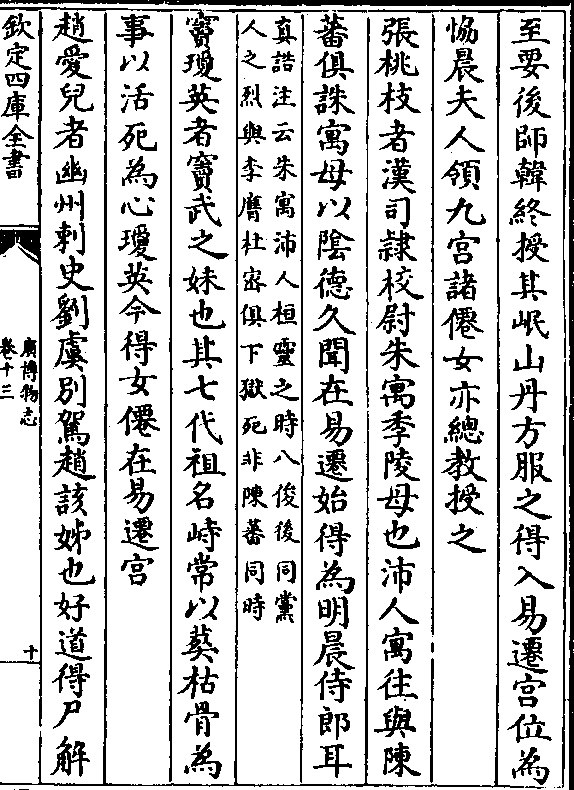 至要後師韓終授其岷山丹方服之得入易遷宫位為
恊晨夫人領九宫諸僊女亦總教授之
張桃枝者漢司隷校尉朱寓季陵母也沛人寓往與陳
蕃俱誅寓母以隂德久聞在易遷始得為明晨侍郎耳
真誥注云朱寓沛人桓靈之時八俊後同黨
人之烈與李膺杜宻俱下獄死非陳蕃同時
竇瓊英者竇武之妹也其七代祖名峙常以葬枯骨為
事以活死為心瓊英今得女僊在易遷宫
趙愛兒者幽州刺史劉虞别駕趙該姊也好道得尸解
欽定四庫全書
廣博物志
卷十三
十